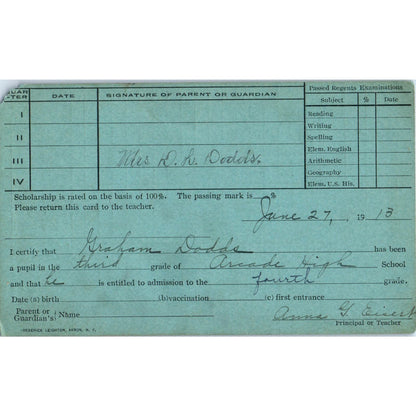 QUAR
-TER DATE SIGNATURE OF PARENT OR GUARDIAN Passed Regents Examinations
Subject % Date
I Reading
Writing
II Spelling
Elem. English
III Mrs D. L. Dodds. Arithmetic
Geography
IV Elem. U.S. His.
Scholarship is rated on the basis of 100%. The passing mark is %
Please return this card to the teacher.
June 27, 1913
I certify that Graham Dodds has been
a pupil in the third grade of Arcade High School
and that he is entitled to admission to the fourth grade.
Date (a) birth (b) vaccination (c) first entrance
Parent or
Guardian's } Name Anna G. Eisert
Principal or Teacher
FREDERICK LEIGHTON, AKRON, N. Y.